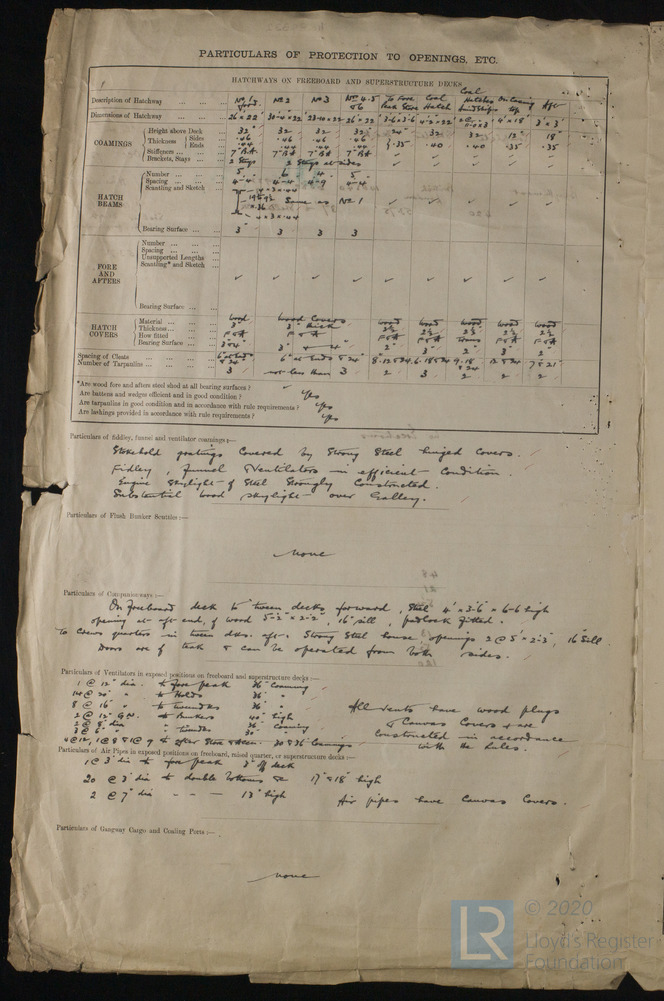 PARTICULARS OF PROTECTION TO OPENINGS, ETC.
HATCHWAYS ON FREEBOARD AND SUPERSTRUCTURE DECKS
Description of Hatchway No. 1 ford. No 2 No 3 No 4.5 & 6 To Fore Peak Store Coal Hatch Coal Hatches On Casing top Aft
Dimensions of Hatchway 26 x 22 30-4 x 22 26 x 22 3-6 x 3-6 4' x 18" 3' x 3'
COAMINGS
Height above Deck 32" 32 32 32 24" 32 32 12" 18"
Thickness Sides .46 .46 .46 .46
Ends .44 .44 .44 .44 .35 .40 .40 .35 .35
Stiffeners 7" BA 7" BA 7" BA 7" BA
Brackets, Stays 2 Stays 2 Stays at sides
HATCH BEAMS
Number 5 6 4 5
Spacing 4-4 4-4 4-9 4-4
Scantling and Sketch Same as No 1
4 x 3 x .44
Bearing Surface 3" 3 3 3
FORE AND AFTERS
Number
Spacing
Unsupported Lengths
Scantling* and Sketch
Bearing Surface
HATCH COVERS
Material wood wood Covers wood wood wood wood wood
Thickness 3" 3" thick 2½ 2½ 2½ 2½ 2½
How fitted F & A F & A F & A F & A F & A F & A
Bearing Surface 2" 3" 2" 3 2"
Spacing of Cleats 6" at ends & 24 6" at ends & 24"
Number of Tarpaulins 3 not less than 3 2 3 2 2 2
*Are wood fore and afters steel shod at all bearing surfaces?
Are battens and wedges efficient and in good condition? yes
Are tarpaulins in good condition and in accordance with rule requirements? yes
Are lashings provided in accordance with rule requirements? yes
Particulars of fiddley, funnel and ventilator coamings:—
Stokehold gratings Covered by Strong Steel hinged Covers.
Fidley, funnel & Ventilators in efficient Condition.
Engine Skylight of Steel Strongly Constructed.
Substantial wood skylight over Galley.
Particulars of Flush Bunker Scuttles:—
None
Particulars of Companionways:—
On freeboard deck to tween decks forward, Steel 4' x 3'-6" x 6'-6 high
opening at aft end, of wood 5-2" x 2-2", 16" sill, padlock fitted.
To Crews quarters in tween dks. aft. Strong Steel house, openings 2 @ 5' x 2-3", 16" Sill.
Doors are of teak & can be operated from both sides.
Particulars of Ventilators in exposed positions on freeboard and superstructure decks:—
1 @ 12" dia. to fore peak 36" Coaming
14 @ 20" " to Holds 36" "
8 @ 16" " to tweendks 36" "
2 @ 12" to Bunkers 40" high
2 @ 8" dia 36" Coaming
3 @ 6" " tweendks 30"
30 & 36" Coamings
All vents have wood plugs
& Canvas Covers & are
constructed in accordance
with the Rules.
Particulars of Air Pipes in exposed positions on freeboard, raised quarter, or superstructure decks:—
1 @ 3" dia to fore peak 3" off deck
20 @ 3" dia to double bottoms &c 17" & 18" high
2 @ 7" dia - - - 13" high Air pipes have Canvas Covers.
Particulars of Gangway Cargo and Coaling Ports:—
None
LR
© 2020
Lloyd's Register
Foundation